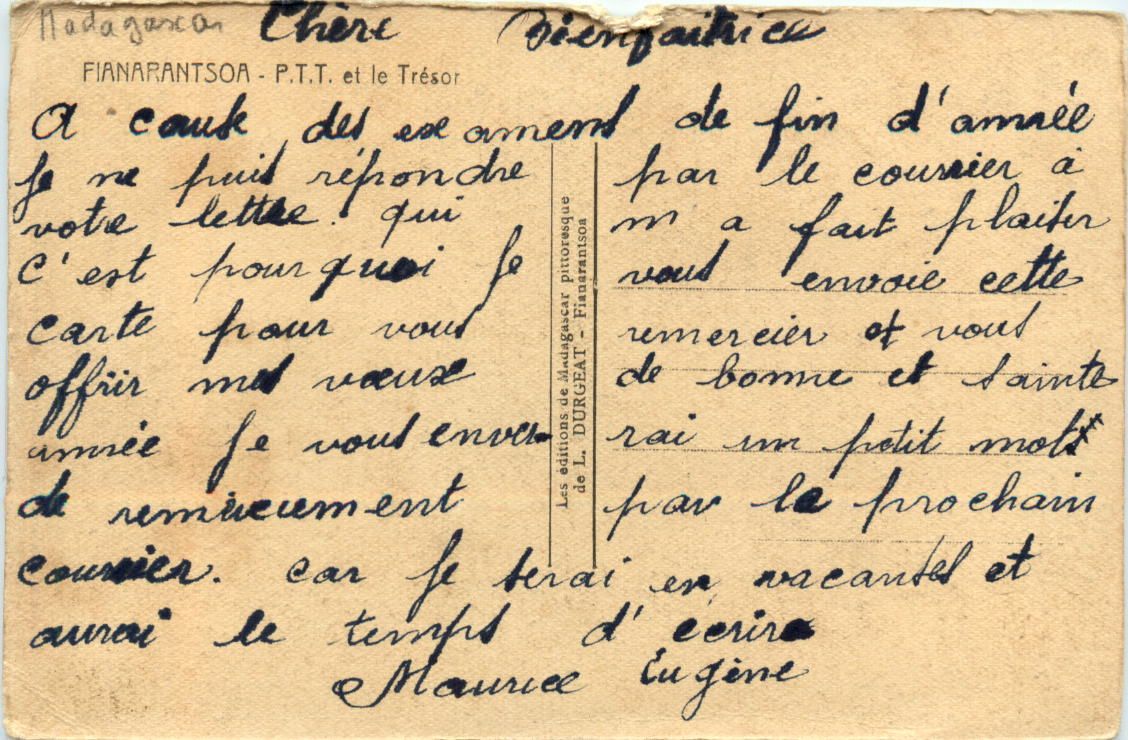 Madagascar
Chère Bienfaitrice
FIANARANTSOA - P.T.T. et le Trésor
A cause des examens de fin d'année
je ne puis répondre par le courrier à
votre lettre. qui m'a fait plaisir
c'est pourquoi je vous envoie cette
carte pour vous remercier et vous
offrir mes vœux de bonne et sainte
année je vous enver-rai un petit mots
de remerciement par le prochain
courrier. car je serai en vacances et
aurai le temps d'écrire
Maurice Eugène
Les éditions de Madagascar pittoresque
de L. DURGEAT - Fianarantsoa